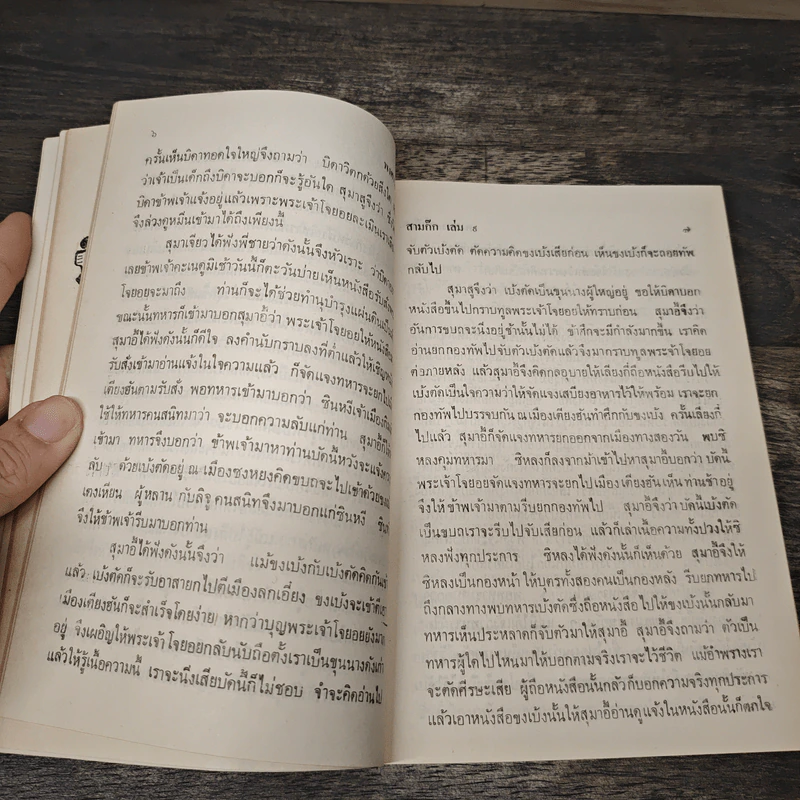 ๖
ครั้นเห็นบิดาทอดใจใหญ่จึงถามว่า บิดาวิตกด้วยสิ่งใด
ว่าเจ้าเป็นเด็กถึงบิดาจะบอกก็จะรู้อันใด สุมาสูจึงว่า
บิดาข้าพเจ้าแจ้งอยู่แล้วเพราะพระเจ้าโจยอยละเมินเรา
จึงล่วงดูหมิ่นเข้ามาได้ถึงเพียงนี้
สุมาเจียวได้ฟังพี่ชายว่าดังนั้นจึงหัวเราะ
เลยข้าพเจ้าคะเนดูมิเช้าวันนี้ก็ตะวันบ่ายเห็นหนังสือรับสั่ง
โจยอยจะมาถึง ท่านก็จะได้ช่วยทำนุบำรุงแผ่นดิน
ขณะนั้นทหารก็เข้ามาบอกสุมาอี้ว่า พระเจ้าโจยอยให้หนังสือ
สุมาอี้ได้ฟังดังนั้นก็ดีใจ ลงคำนับกราบลงที่ต่ำแล้วให้เชิญ
รับสั่งเข้ามาอ่านแจ้งในใจความแล้ว ก็จัดแจงทหารจะยกไป
เตียงฮันตามรับสั่ง พอทหารเข้ามาบอกว่า ซินหงีเจ้าเมือง
ใช้ให้ทหารคนสนิทมาว่า จะบอกความลับแก่ท่าน สุมาอี้
เข้ามา ทหารจึงบอกว่า ข้าพเจ้ามาหาท่านบัดนี้หวังจะแจ้ง
ลับ ด้วยเบ้งตัดอยู่ ณ เมืองซงหยงคิดขบถจะไปเข้าด้วย
เตงเหียน ผู้หลาน กับลิจู คนสนิทจึงมาบอกแก่ซินหงี
จึงให้ข้าพเจ้ารีบมาบอกท่าน
สุมาอี้ได้ฟังดังนั้นจึงว่า แม้ขงเบ้งกับเบ้งตัดคิดกัน
แล้ว เบ้งตัดก็จะรับอาสายกไปตีเมืองลกเอี๋ยง ขงเบ้งจะเข้าตี
เมืองเตียงฮันก็จะสำเร็จโดยง่าย หากว่าบุญพระเจ้าโจยอยยัง
อยู่ จึงเผอิญให้พระเจ้าโจยอยกลับนับถือตั้งเราเป็นขุนนางดังเก่า
แล้วให้รู้เนื้อความนี้ เราจะนิ่งเสียบัดนี้ก็ไม่ชอบ จำจะคิดอ่านไป
สามก๊ก เล่ม ๙ ๗
จับตัวเบ้งตัด ตัดความคิดขงเบ้งเสียก่อน เห็นขงเบ้งก็จะถอยทัพ
กลับไป
สุมาสูจึงว่า เบ้งตัดเป็นขุนนางผู้ใหญ่อยู่ ขอให้บิดาบอก
หนังสือขึ้นไปกราบทูลพระเจ้าโจยอยให้ทราบก่อน สุมาอี้จึงว่า
อันการขบถจะนิ่งอยู่ช้านั้นไม่ได้ ข้าศึกจะมีกำลังมากขึ้น เราคิด
อ่านยกกองทัพไปจับตัวเบ้งตัดแล้วจึงมากราบทูลพระเจ้าโจยอย
ต่อภายหลัง แล้วสุมาอี้จึงคิดกลอุบายให้เลียงกี๋ถือหนังสือรีบไปให้
เบ้งตัดเป็นใจความว่าให้จัดแจงเสบียงอาหารไว้ให้พร้อม เราจะยก
กองทัพไปบรรจบกัน ณ เมืองเตียงฮันทำศึกกับขงเบ้ง ครั้นเลียงกี๋
ไปแล้ว สุมาอี้ก็จัดแจงทหารยกออกจากเมืองทางสองวัน พบซิ
หลงคุมทหารมา ซิหลงก็ลงจากม้าเข้าไปหาสุมาอี้บอกว่า บัดนี้
พระเจ้าโจยอยจัดแจงทหารจะยกไปเมืองเตียงฮันเห็นท่านช้าอยู่
จึงให้ข้าพเจ้ามาตามรีบยกกองทัพไป สุมาอี้จึงว่าบัดนี้เบ้งตัด
เป็นขบถเราจะรีบไปจับเสียก่อน แล้วก็เล่าเนื้อความทั้งปวงให้ซิ
หลงฟังทุกประการ ซิหลงได้ฟังดังนั้นก็เห็นด้วย สุมาอี้จึงให้
ซิหลงเป็นกองหน้า ให้บุตรทั้งสองคนเป็นกองหลัง รีบยกทหารไป
ถึงกลางทางพบทหารเบ้งตัดซึ่งถือหนังสือไปให้ขงเบ้งนั้นกลับมา
ทหารเห็นประหลาดก็จับตัวมาให้สุมาอี้ สุมาอี้จึงถามว่า ตัวเป็น
ทหารผู้ใดไปไหนมาให้บอกตามจริงเราจะไว้ชีวิต แม้อำพรางเรา
จะตัดศีรษะเสีย ผู้ถือหนังสือนั้นกลัวก็บอกความจริงทุกประการ
แล้วเอาหนังสือขงเบ้งนั้นให้สุมาอี้อ่านดูแจ้งในหนังสือนั้นก็ตกใจ